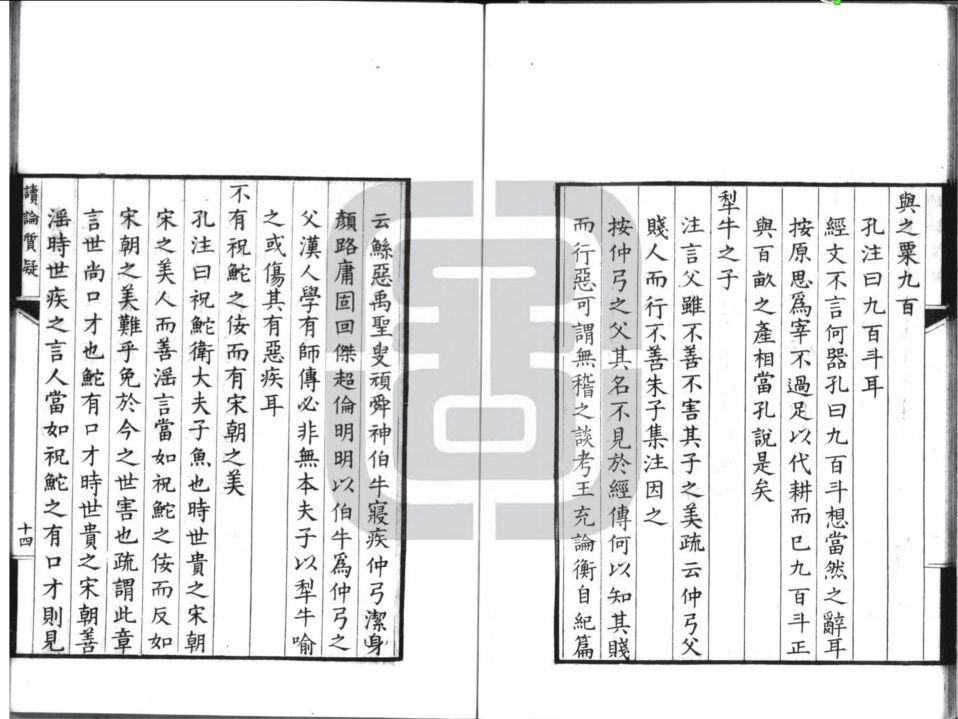 與之粟九百
孔注曰九百斗耳
經文不言何器孔曰九百斗想當然之辭耳
按原思爲宰不過足以代耕而已九百斗正
與百畝之產相當孔說是矣
犁牛之子
注言父雖不善不害其子之美疏云仲弓父
賤人而行不善朱子集注因之
按仲弓之父其名不見於經傳何以知其賤
而行惡可謂無稽之談考王充論衡自紀篇
云鯀惡禹聖叟頑舜神伯牛寢疾仲弓潔身
顏路庸固回傑超倫明明以伯牛爲仲弓之
父漢人學有師傳必非無本夫子以犁牛喻
之或傷其有惡疾耳
不有祝鮀之佞而有宋朝之美
孔注曰祝鮀衛大夫子魚也時世貴之宋朝
宋之美人而善淫言當如祝鮀之佞而反如
宋朝之美難乎免於今之世害也疏謂此章
言世尚口才也鮀有口才時世貴之宋朝善
淫時世疾之言人當如祝鮀之有口才則見
讀論質疑
十四